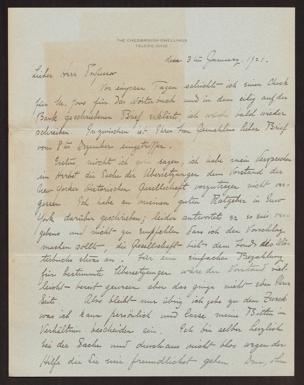 THE CHESBROUGH DWELLINGS
TOLEDO, OHIO
den 3ten Januar, 1921.
Lieber Herr Professor
Vor einigen Tagen schickte ich einen Check
für das Wörterbuch und in dem eilig auf der
Bank geschriebenen Brief erklärt, ich würde bald wieder
schreiben. Inzwischen ist Ihrer Frau Gemahlins lieber Brief
vom 8ten Dezember eingetroffen.
Erstens möcht ich sagen, ich habe mein Versprechen
im Herbst die Sache der Übersetzungen dem Vorstand der
New Yorker Historischen Gesellschaft vorzutragen nicht ver-
gessen. Ich habe an meinen guten Ratgeber in New
York darüber geschrieben; leider antwortet er es sei ver-
gebens und nicht zu empfehlen dass ich den Vorschlag
machen sollt, die Gesellschaft
etwas an. Für eine einfache Bezahlung
für bestimmte Übersetzungen wäre der Vorstand viel-
leicht bereit gewesen aber das ginge nicht über Ihre
Seite. Also bleibt nur übrig ich gebe zu dem Zweck
was ich kann persönlich und lasse meine Bitten im
Verhältnis bescheiden sein. Ich bin selber herzlich
bei der Sache und durchaus nicht bloss wegen der
Hilfe die Sie mir freundlichst geben. Denn, ohne